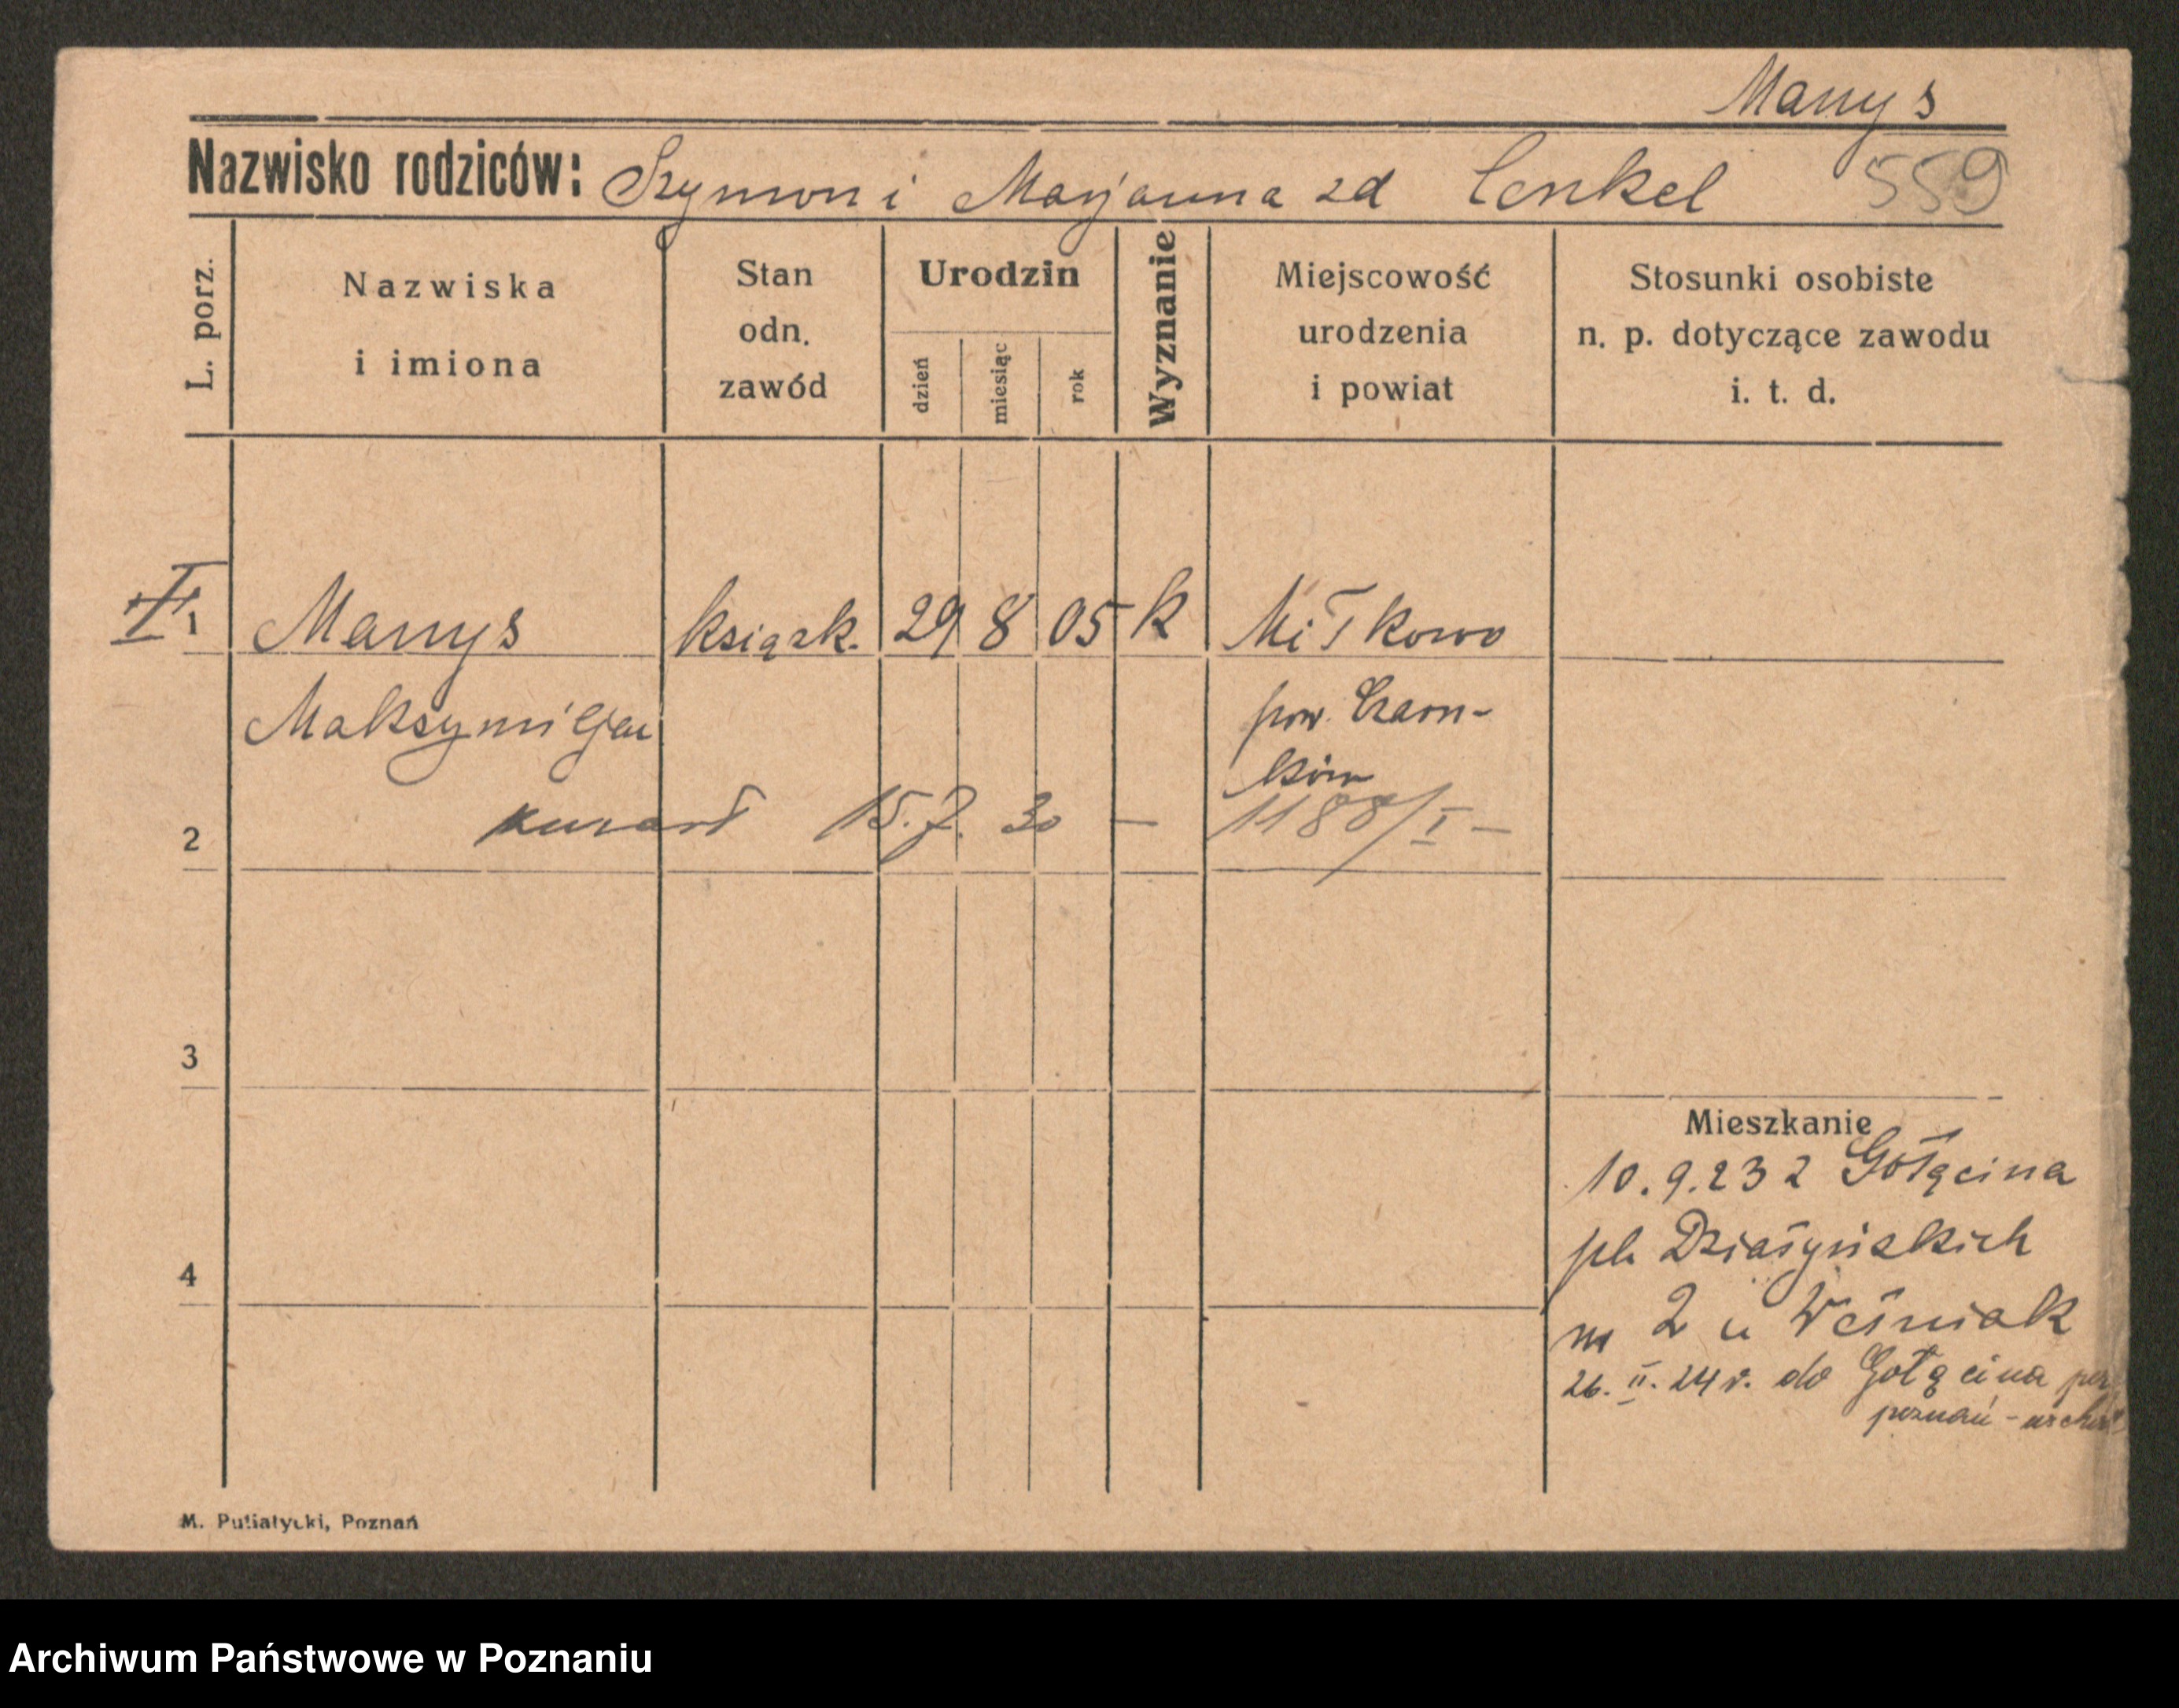 Manys
Nazwisko rodziców: Szymon i Marjanna zd Cenkel 559
L. porz.
Nazwiska
i imiona
Stan
odn.
zawód
Urodzin
dzień
miesiąc
rok
Wyznanie
Miejscowość
urodzenia
i powiat
Stosunki osobiste
n. p. dotyczące zawodu
i. t. d.
1 Manys książk. 29 8 05 k Miłkowo
Maksymiljan pow. Czarn-
ków
2 15.7. 30 — 1188/I —
3
Mieszkanie
10.9.23 z Gołęcina
4 pl. Działyńskich
m 2 u Weśniak
26. II. 24 r. do Gołęcina
poznań -
M. Putiatycki, Poznań
Archiwum Państwowe w Poznaniu